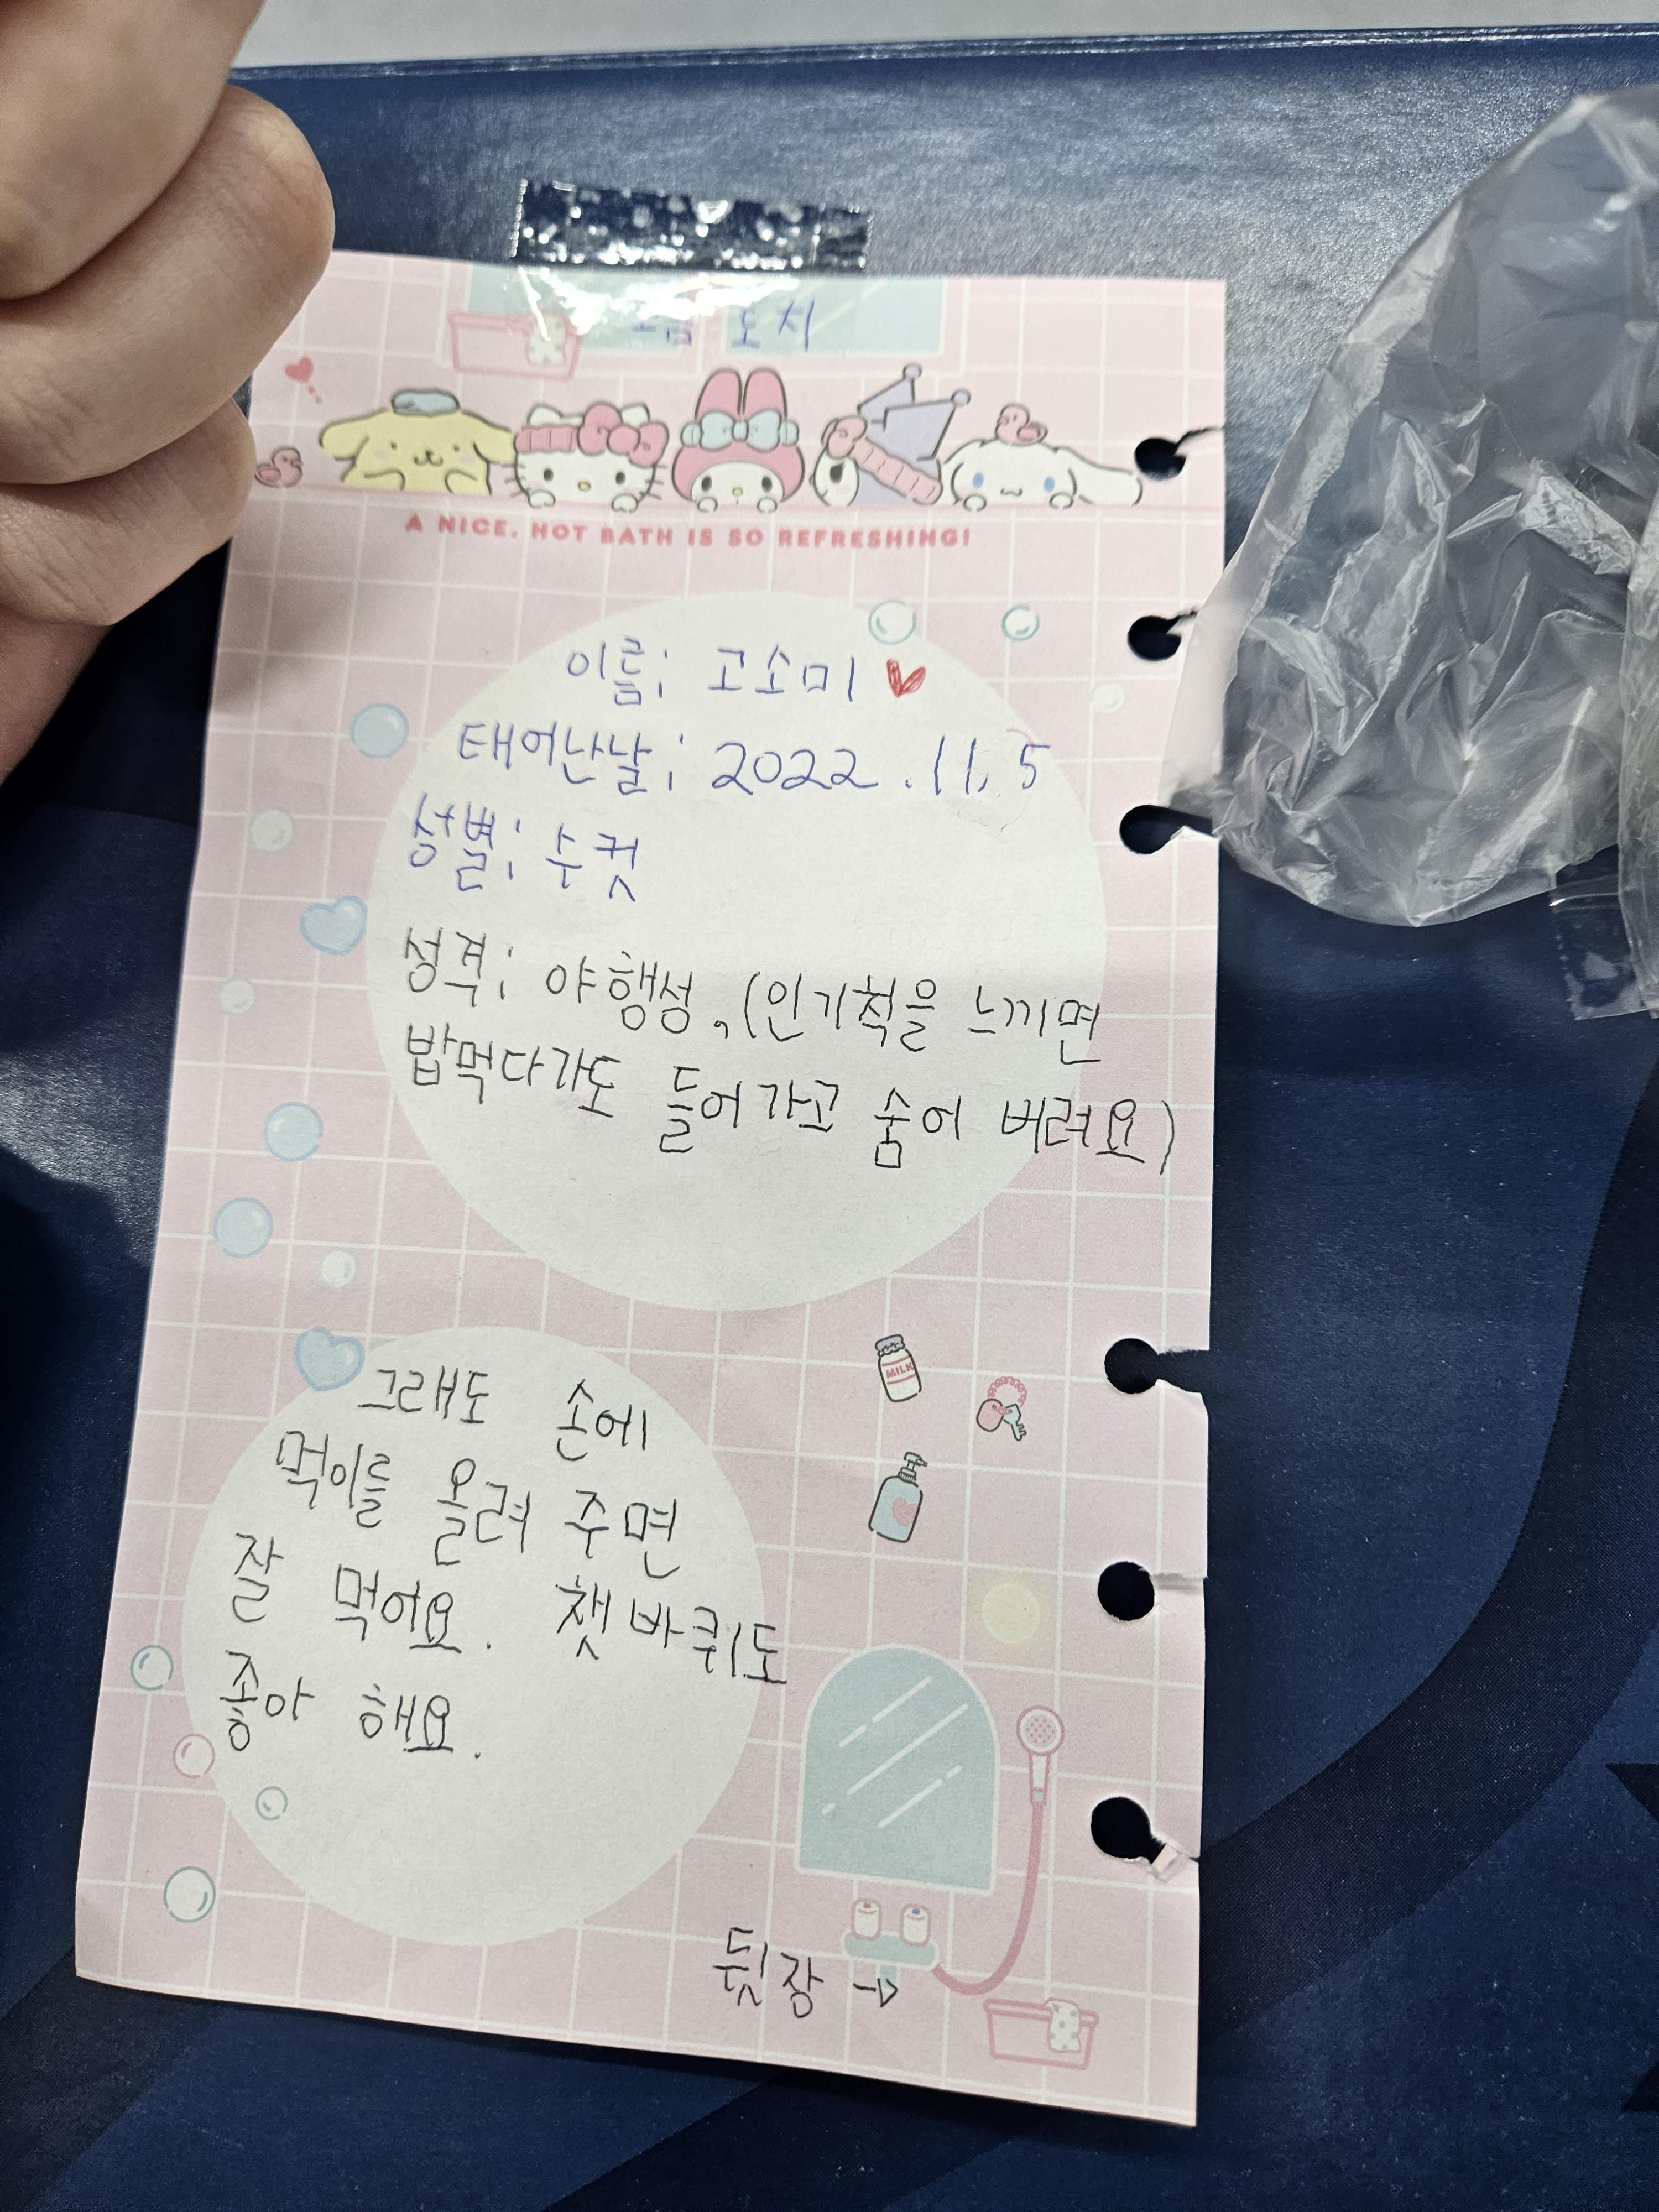 도치
A NICE, HOT BATH IS SO REFRESHING!
이름: 고소미
태어난날: 2022.11.5
성별: 수컷
성격: 야행성.(인기척을 느끼면
밥먹다가도 들어가고 숨어 버려요)
MILK
그래도 손에
먹이를 올려 주면
잘 먹어요. 쳇바퀴도
좋아 해요.
뒷장 →